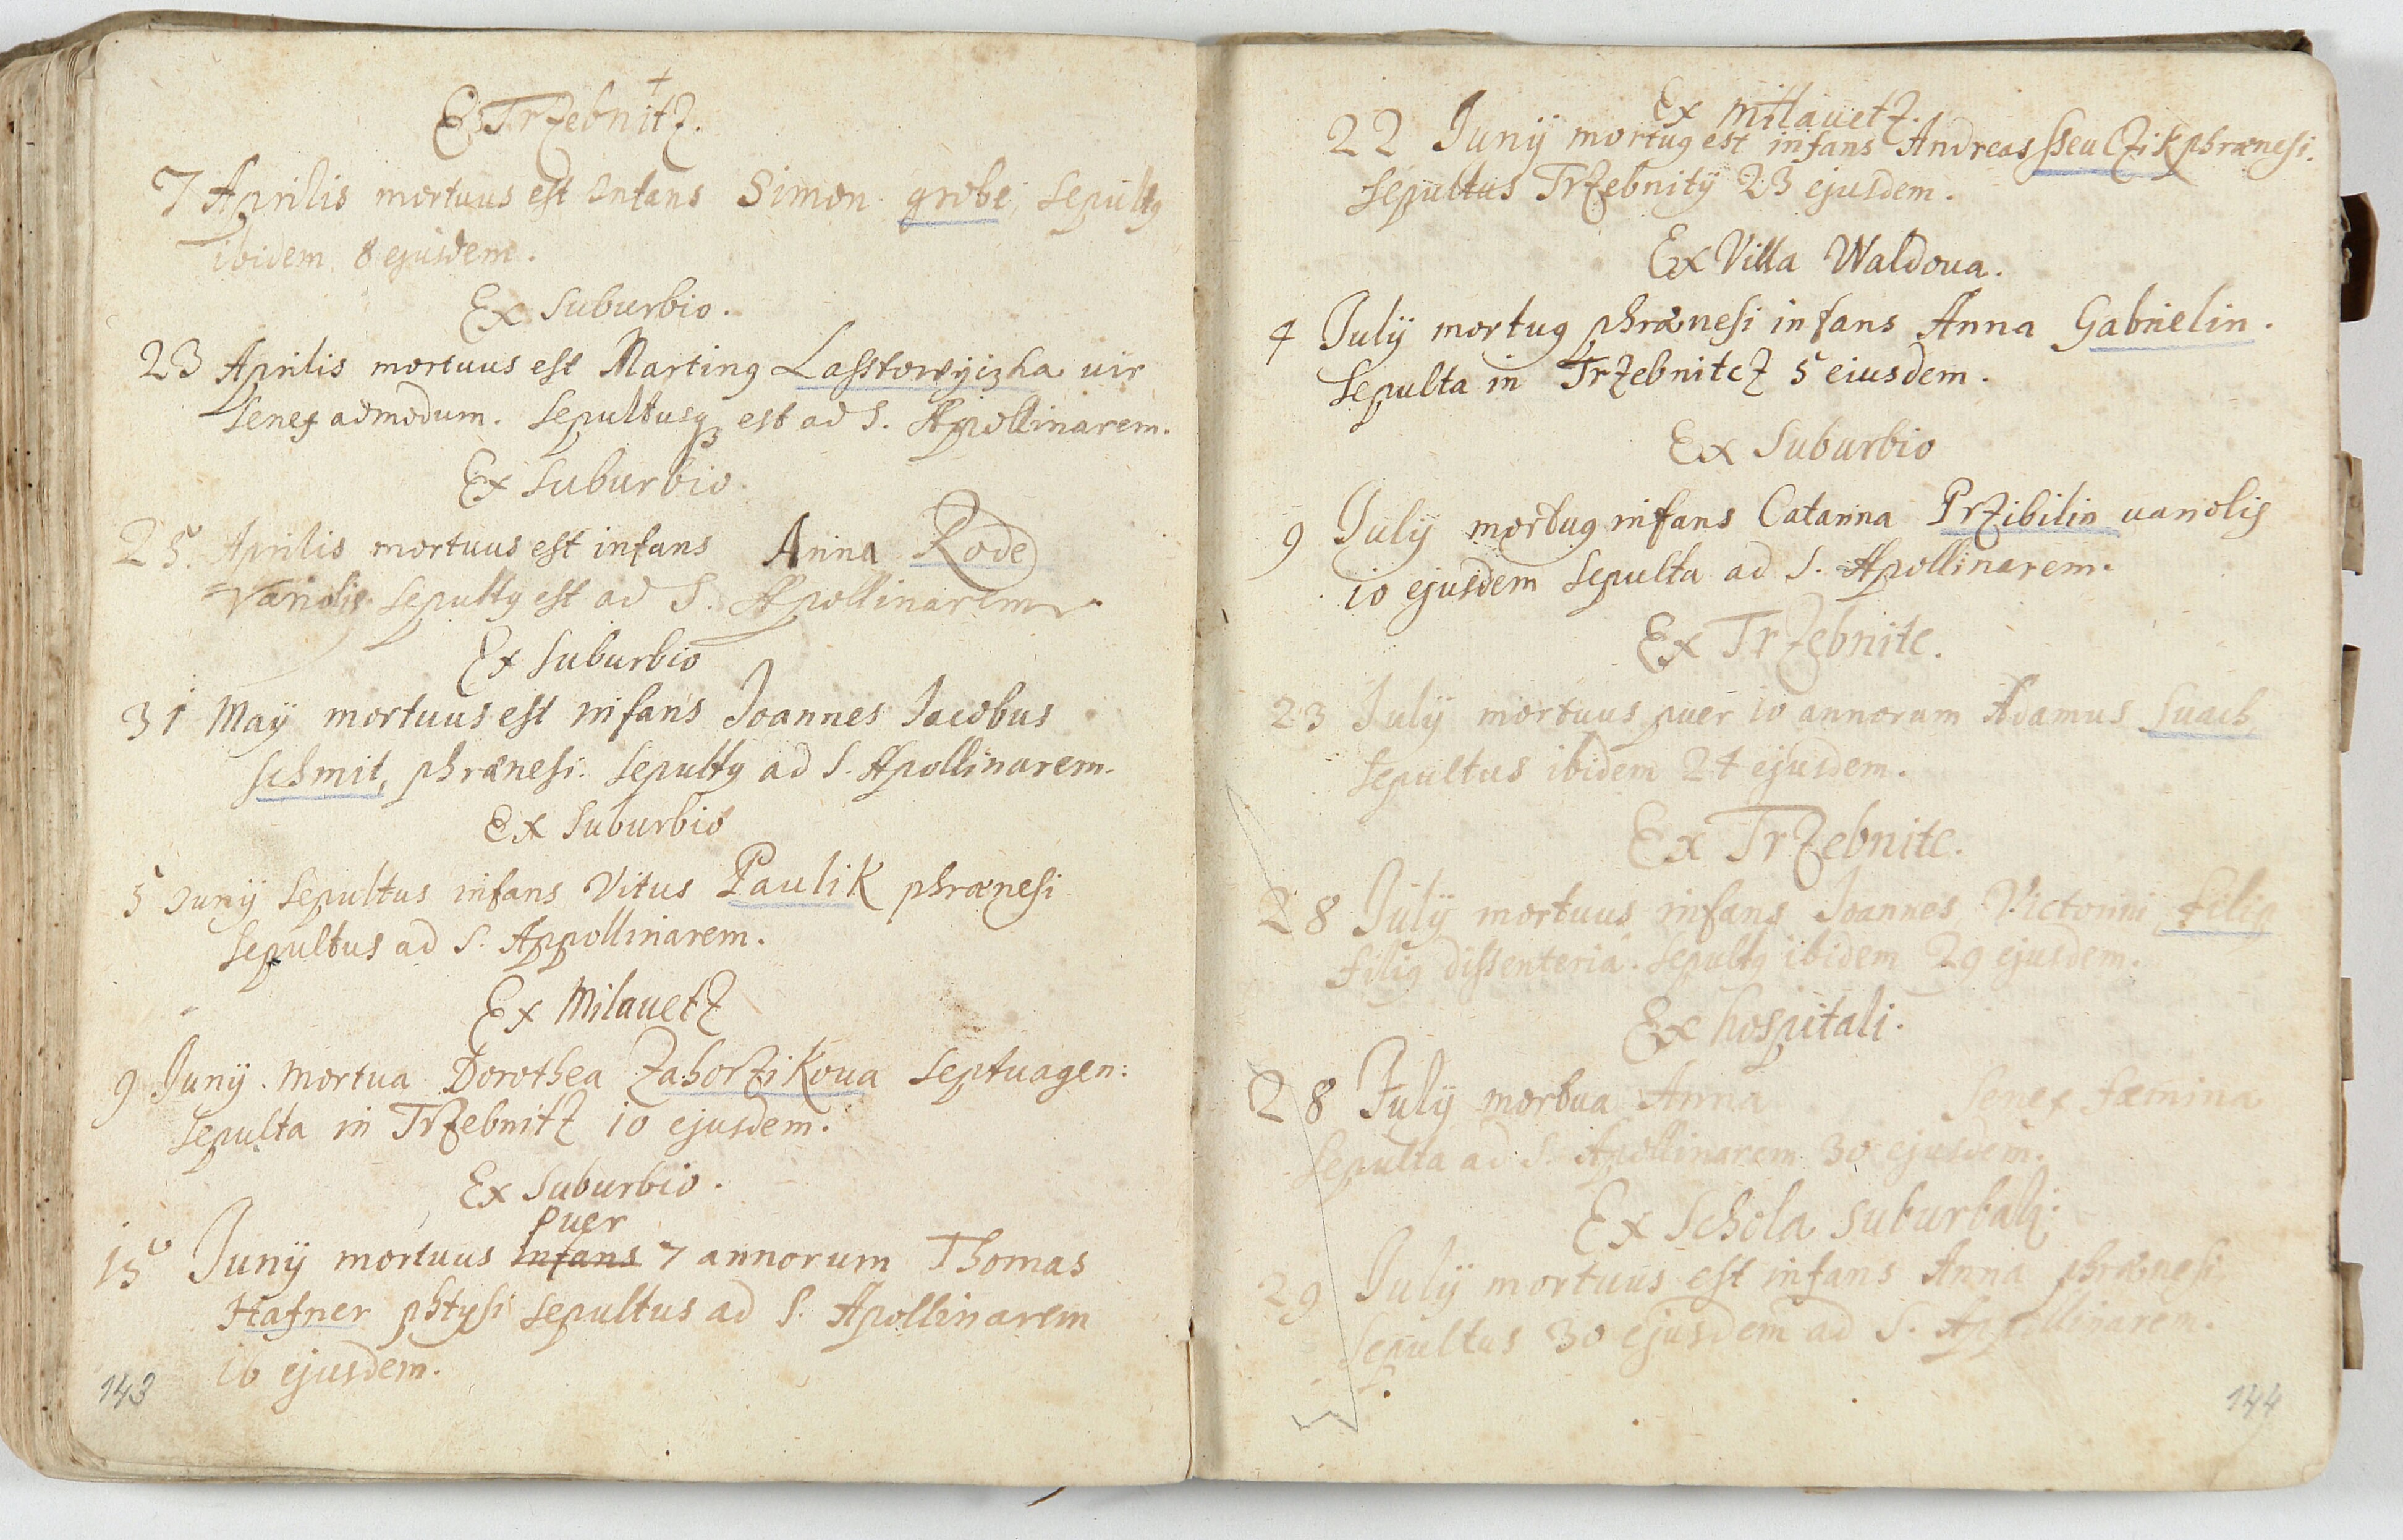 Ex Trzebnitz.
7 Aprilis mortuus est Infans Simon grobe, Sepultꝰ
ibidem 8 ejusdem.
Ex Suburbio.
23 Aprilis mortuus est Martinꝰ Lasstowyczka uir
Senex admodum. Sepultusqꝫ est ad S. Apollinarem.
Ex Suburbio.
25. Aprilis mortuus est infans Anna Rode
Variolis Sepultꝰ est ad S. Apollinarem
Ex Suburbio
31 Maÿ mortuus est infans Joannes Jacobus
Schmit, phrænesi. Sepultꝰ ad S. Apollinarem.
Ex Suburbio
5 Junÿ Sepultus infans Vitus Paulik phrænesi
Sepultus ad S. Appollinarem.
Ex Milauetz
9 Junÿ. Mortua Dorothea Zahorzikoua Septuagen:
Sepulta in Trzebnitz 10 ejusdem.
Ex Suburbio.
puer
15 Junÿ mortuus Infans 7 annorum Thomas
Hafner phtysi Sepultus ad S. Apollinarem
16 ejusdem.
143
Ex Milauetz.
22 Junÿ mortuꝰ est infans Andreas sseuczik phrænesi.
Sepultus Trzebnitÿ 23 ejusdem.
Ex Villa Waldoua.
4 Julÿ mortuꝰ phrænesi infans Anna Gabrielin.
Sepulta in Trzebnitcz 5 eiusdem.
Ex Suburbio
9 Julÿ mortuꝰ infans Catarina Przibilin uariolis
10 ejusdem Sepulta ad S. Apollinarem.
Ex Trzebnitc.
23 Julÿ mortuus puer 10 annorum Adamus Suach
Sepultus ibidem 24 ejusdem.
Ex Trzebnitc.
28 Julÿ mortuus infans Joannes Victorini filip
filiꝰ dissenteria. Sepultꝰ ibidem 29 ejusdem.
Ex hospitali.
28 Julÿ mortua Anna Senex fæmina
Sepulta ad S. Apollinarem 30 ejusdem.
Ex Schola suburbali.
29 Julÿ mortuus est infans Anna phrænesi
Sepultus 30 ejusdem ad S. Appollinarem.
144